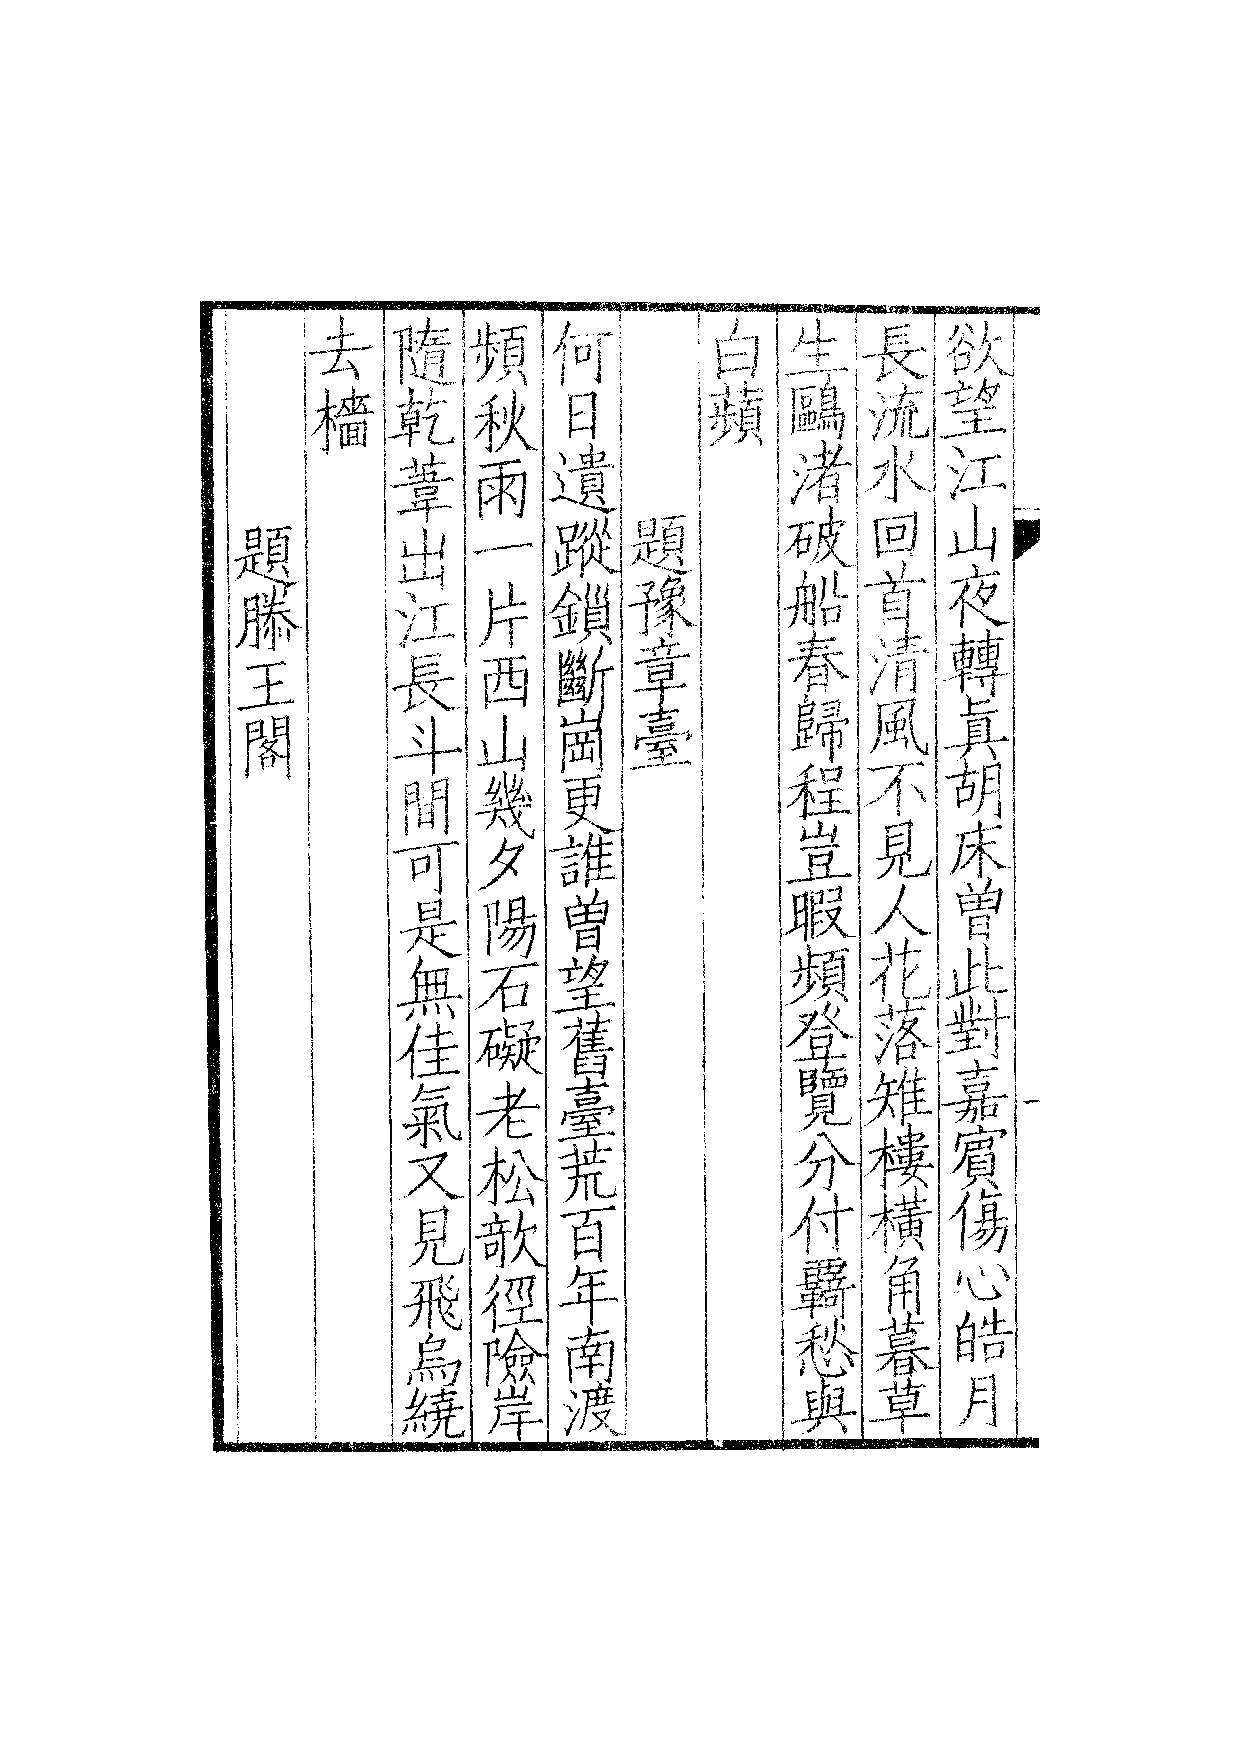 欲望江山夜轉眞胡床曽此對嘉賓傷心皓月
長流水回首清風不見人花落雉樓橫角暮草
生鷗渚破船春歸程豈暇頻登覽分付羇愁與
白蘋
題豫章臺
何日遺蹤鎖斷崗更誰曽望舊臺荒百年南渡
頻秋雨一片西山幾夕陽石礙老松欹徑險岸
隨乾葦出江長斗間可是無佳氣又見飛烏繞
去檣
題滕王閣